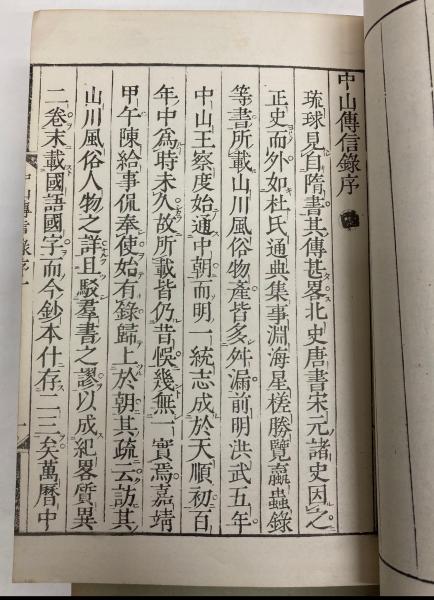 中山傳信錄序
琉球見自隋書其傳甚畧北史唐書宋元諸史因之
正史而外如杜氏通典集事淵海星槎勝覽蠃蟲錄
等書所載山川風俗物產皆多舛漏前明洪武五年
中山王察度始通中朝而明一統志成於天順初百
年中爲時未久故所載皆仍昔悞幾無一實焉嘉靖
甲午陳給事侃奉使始有錄歸上於朝其疏云訪其
山川風俗人物之詳且駁羣書之謬以成紀畧質異
二卷末載國語國字而今鈔本什存二三矣萬曆中
中山傳信錄序
一